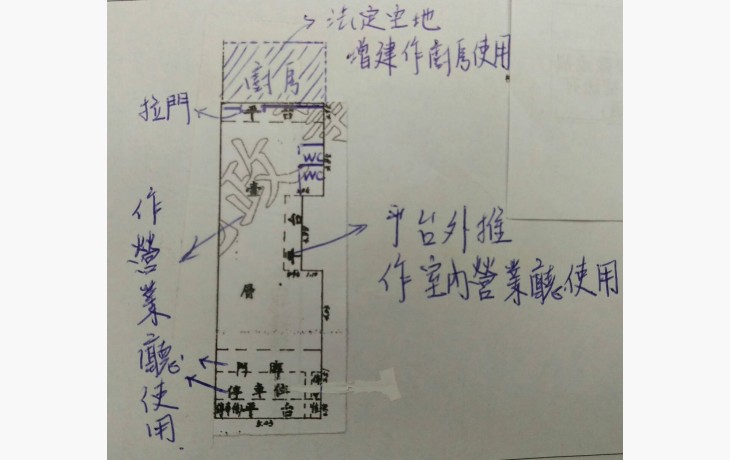 法定空地
增建作廚房使用
廚房
拉門
平台
WC
WC
壹
平台
平台外推
作室內營業廳使用
層
作營業廳使用
門廊
停車位
平台
5.03